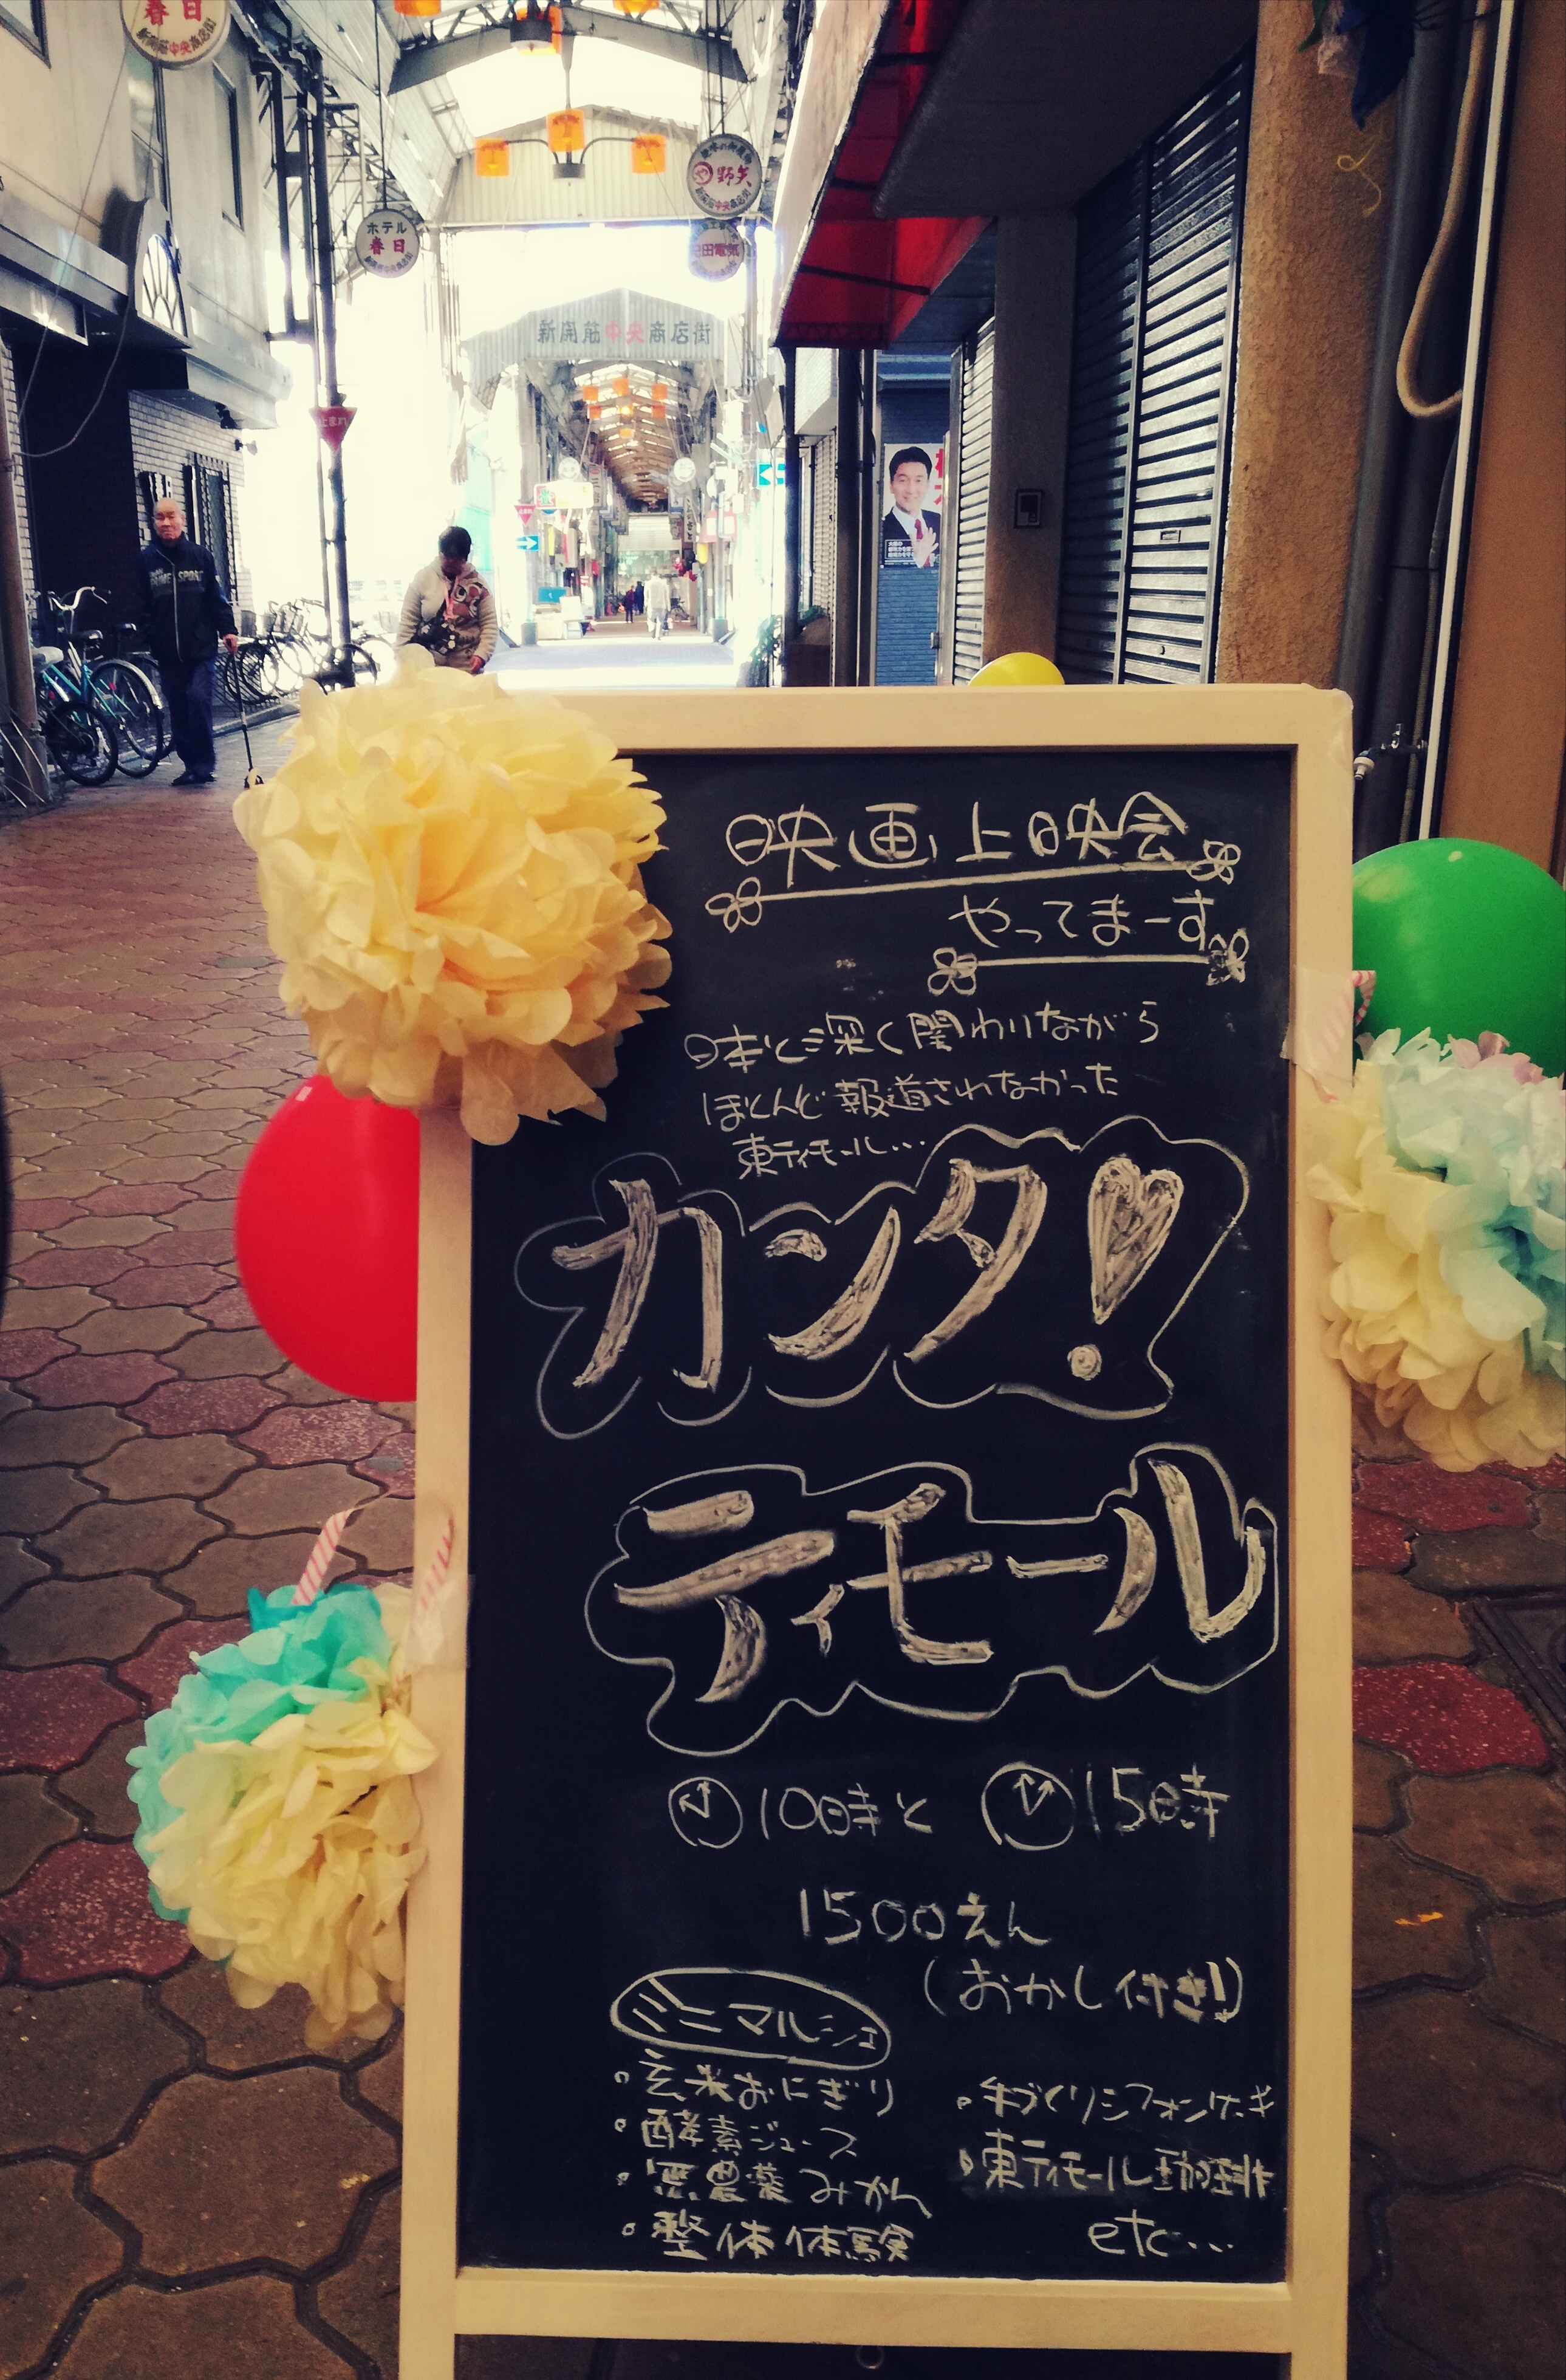 春日
新開筋中央商店街
野矢
新開筋中央商店街
ホテル
春日
新開筋中央商店街
田電気
新開筋中央商店街
止まれ
PRIME SPORT
映画上映会
やってまーす
日本と深く関わりながら
ほとんど報道されなかった
東ティモール…
カンタ!
ティモール
10時と 15時
1500えん
(おかし付き!)
ミニマルシェ
・玄米おにぎり
・酵素ジュース
・無農薬みかん
・整体体験
・手づくりシフォンケーキ
・東ティモール珈琲
etc…